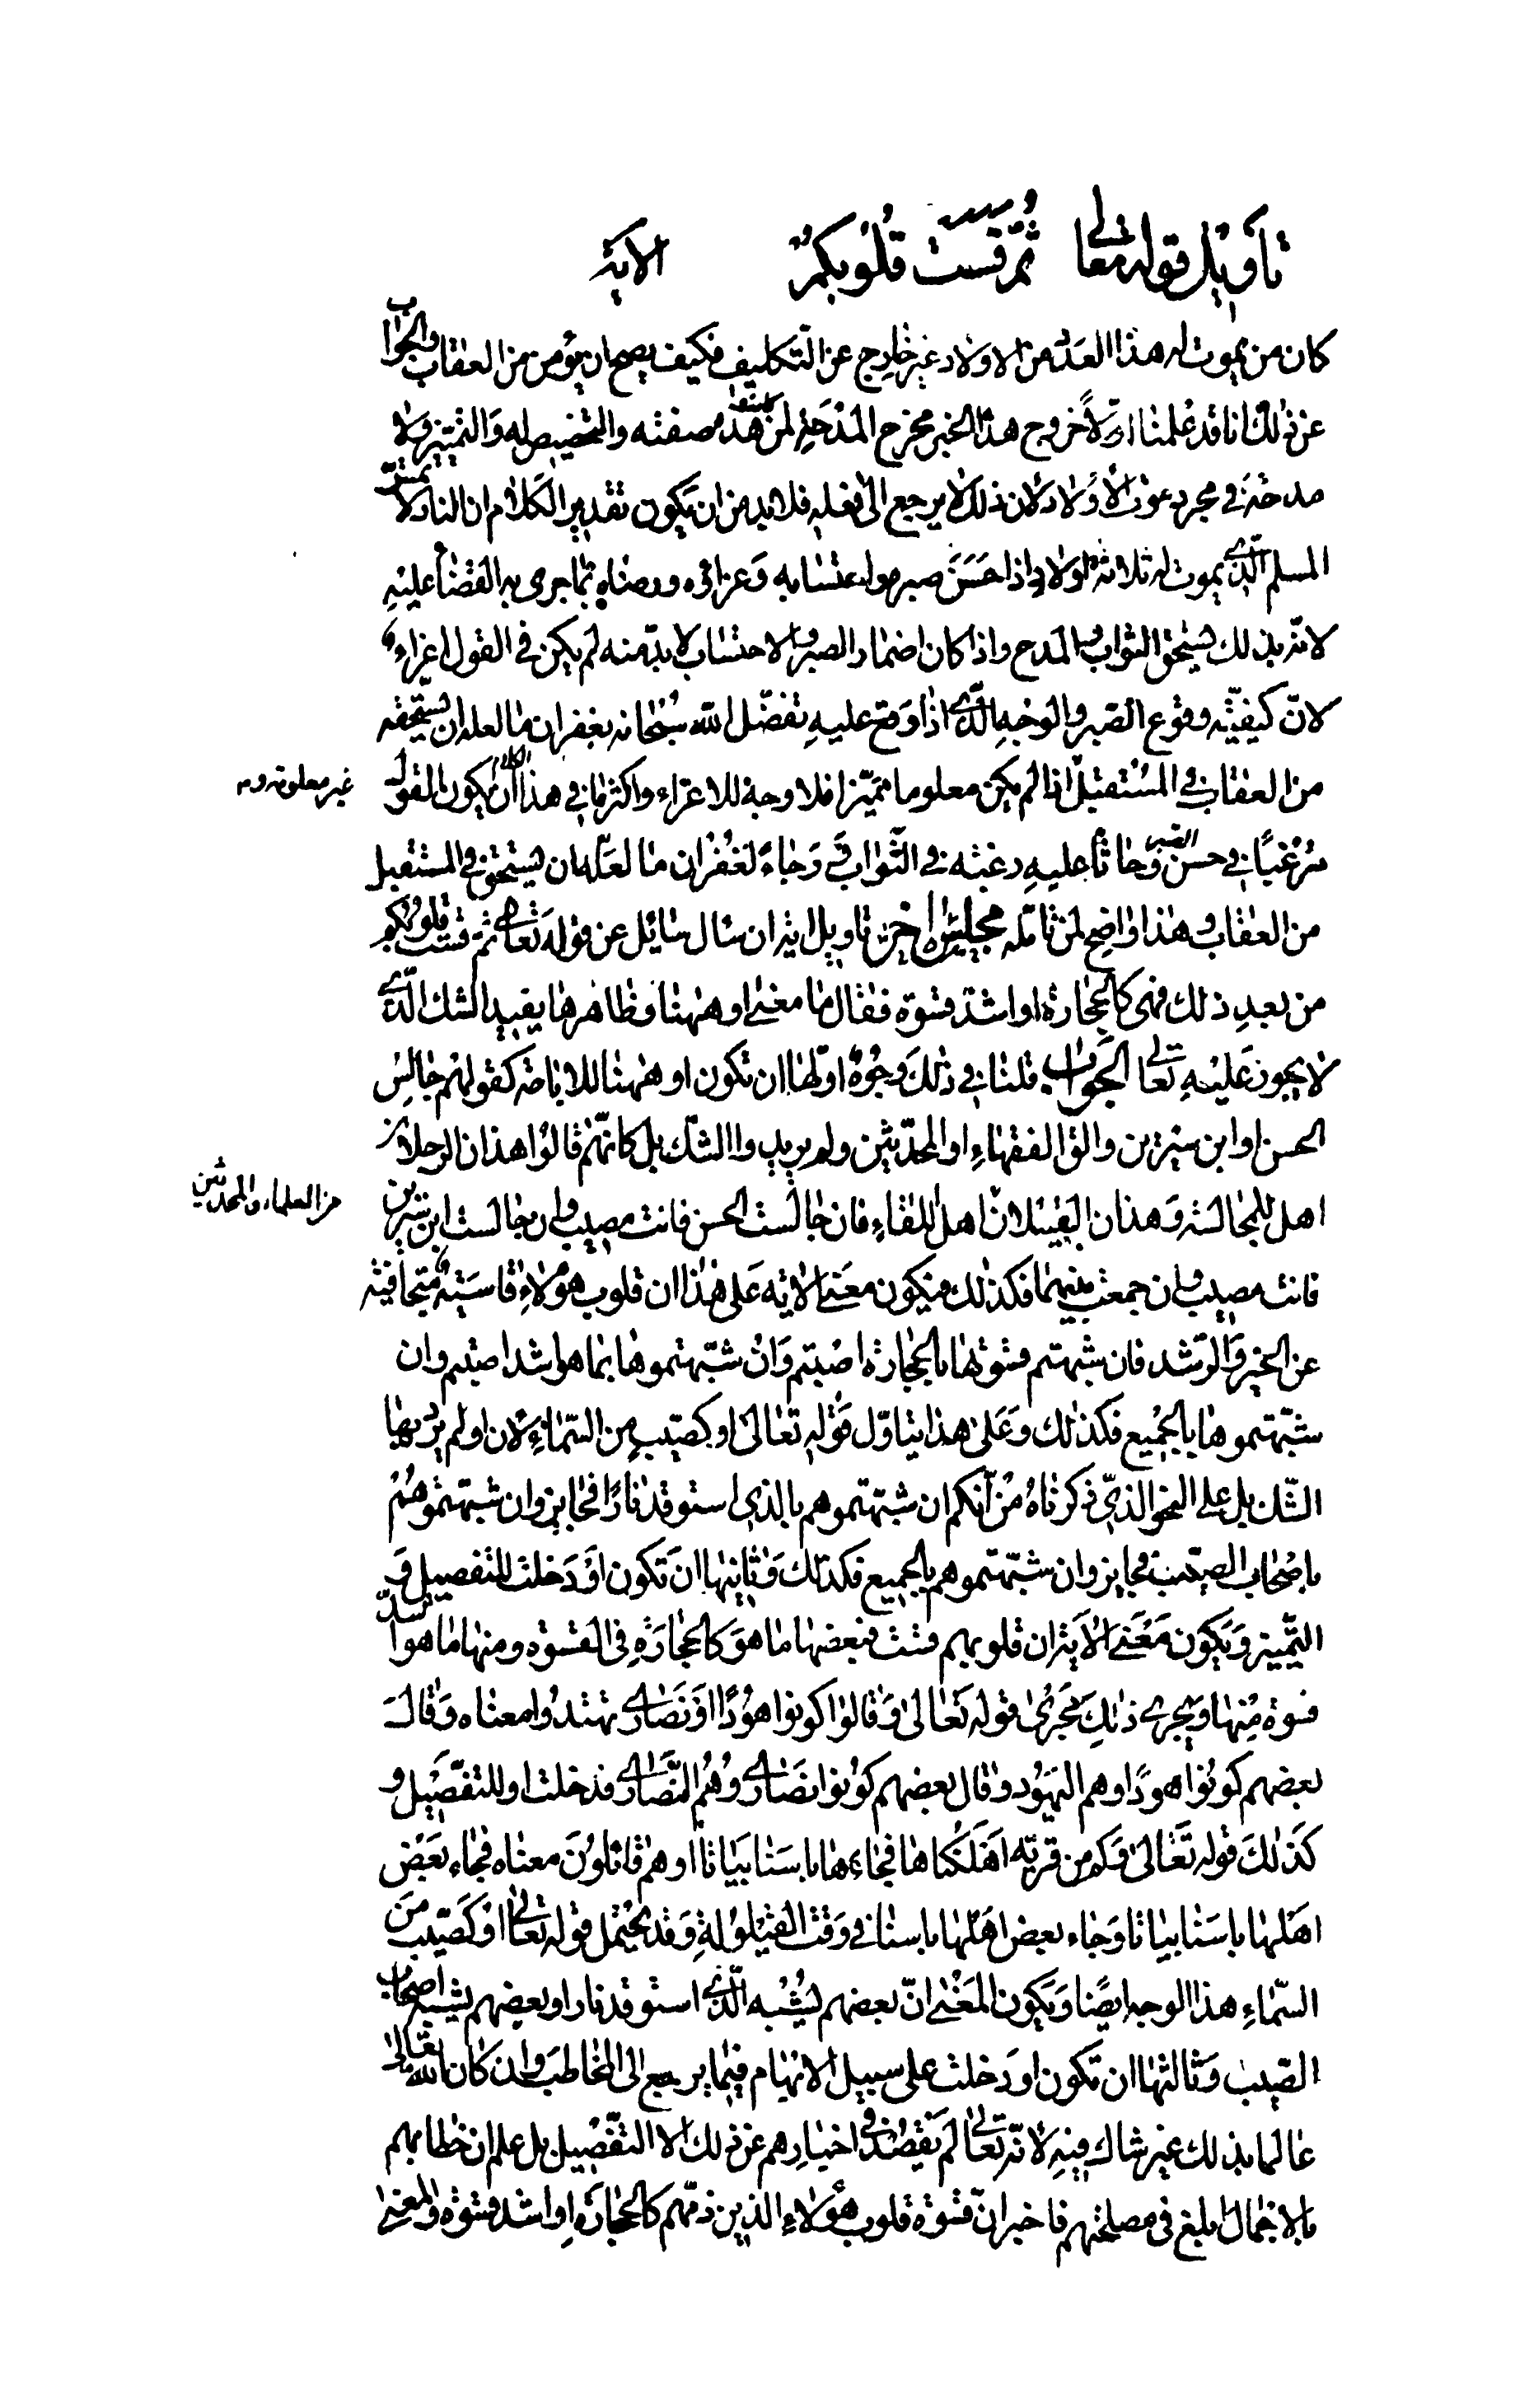 تاويل قوله تعالى ثُمَّ قَسَت قُلُوبكم الاية
كان من يموت له هذا العدد من الاولاد غير خارج عن التكليف فكيف يصح ان يؤمن من العقاب والجواب
عن ذلك انا قد علمنا اوّلاً خروج هذا الخبر مخرج المدحة لمن هذه صفته والتخصيص له والتمييز ولا
مدحة في مجرد موت الأولاد لان ذلك لا يرجع الى فعله فلا بد من ان يكون تقدير الكلام ان النار لا تمسّ
المسلم الّذي يموت له ثلاثة اولاد اذا حسن صبره واحتسابه وعزاؤه ورضاه بما جرى به القضاء عليه
لانّه بذلك يستحق الثواب والمدح واذا كان اضمار الصبر والاحتساب لا بدّ منه لم يكن في القول اغراء
لانّ كيفيّة وقوع الصبر والوجه الّذي اذا وقع عليه تفضّل الله سبحانه بغفران ما لعله ان يستحقه
من العقاب في المستقبل اذا لم يكن معلوما متميّزا فلا وجه للاغراء واكثر ما في هذا الكلام ان يكون القول
غير معلومة
مرغبًا في حسن الصبر وحاثا عليه رغبة في الثواب ورجاءً لغفران ما لعله ان يستحق في المستقبل
من العقاب وهذا واضح لمن تامّله مجلس اخر تاويل اية ان سال سائل عن قوله تعالى ثم قست قلوبكم
من بعد ذلك فهي كالحجارة او اشدّ قسوة فقال ما معنى او ههنا وظاهرها يفيد الشك الّذي
لا يجوز عليه تعالى الجواب قلنا في ذلك وجوه اوّلها ان تكون او ههنا للاباحة كقولهم جالس
الحسن او ابن سيرين والق الفقهاء او المحدّثين ولم يريدوا الشّك بل كانّهم قالوا هذان الرجلان
اهل للمجالسة وهذان القبيلان اهل للقاء فان جالست الحسن فانت مصيب وان جالست ابن سيرين
من العلماء والمحدثين
فانت مصيب وان جمعت بينهما فكذلك فيكون معنى الاية على هذا ان قلوب هؤلاء قاسية متجافية
عن الخير والرّشد فان شبهتم قسوتها بالحجارة اصبتم وان شبّهتموها بما هو اشد اصبتم وان
شبّهتموها بالجميع فكذلك وعلى هذا يتاوّل قوله تعالى او كصيّب من السّماء لان او لم يرد بها
الشّك بل على النحو الّذي ذكرناه من انّكم ان شبّهتموهم بالذي استوقد نارًا فجايز وان شبهتموهم
باصحاب الصيّب فجايز وان شبّهتموهم بالجميع فكذلك وثانيها ان تكون او دخلت للتفصيل و
التّمييز ويكون معنى الاية ان قلوبهم قست فبعضها ما هو كالحجارة في القسوة ومنها ما هو اشدّ
قسوة منها ويجري ذلك مجرى قوله تعالى وقالوا كونوا هودًا او نصارى تهتدوا معناه وقال
بعضهم كونوا هودًا وهم اليهود وقال بعضهم كونوا نصارى وهم النّصارى فدخلت او للتفصيل و
كذلك قوله تعالى وكم من قرية اهلكناها فجاءها باسنا بياتا او هم قائلون معناه فجاء بعض
اهلها باسنا بياتا وجاء بعض اهلها باسنا في وقت القيلولة وقد يحتمل قوله تعالى او كصيّب من
السّماء هذا الوجه ايضًا ويكون المعنى انّ بعضهم يشبه الّذي استوقد نارا وبعضهم يشبه اصحاب
الصّيب وثالثها ان تكون او دخلت على سبيل الابهام فيما يرجع الى المخاطب وان كان الله تعالى
عالما بذلك غير شاك فيه لانّه تعالى لم يقصد في اخبارهم عن ذلك الا التّفصيل بل علم ان خطابهم
بالاجمال ابلغ في مصلحتهم فاخبر انّ قسوة قلوب هؤلاء الذين ذمّهم كالحجارة او اشد قسوة والمعنى